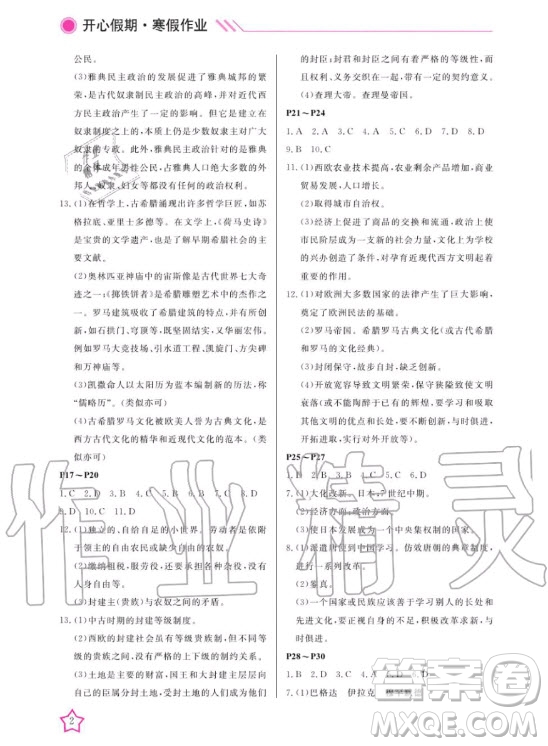 开心假期·寒假作业
公民。
(3)雅典民主政治的发展促进了雅典城邦的繁
荣，是古代奴隶制民主政治的高峰，并对近代西
方民主政治产生了一定的影响。但它是建立在
奴隶制度之上的，本质上是少数奴隶主对广大
奴隶的专政。此外，雅典民主政治的民主是雅典
的全体成年男性公民，占雅典人口绝大多数的外
邦人、奴隶、妇女等都没有政治权利。
13.(1)在哲学上，古希腊涌现出许多哲学巨匠，如苏
格拉底、亚里士多德等。在文学上，《荷马史诗》
是宝贵的文学遗产，也是了解早期希腊社会的主
要文献。
(2)奥林匹亚神庙中的宙斯像是古代世界七大奇
迹之一；《掷铁饼者》是希腊雕塑艺术中的杰作之
一。罗马建筑吸收了希腊建筑风格，并有所创
新，如石拱门、穹顶等，既坚固实用，又华丽宏伟。
例如罗马大竞技场、引水道工程、凯旋门、方尖碑
和万神庙等。
(3)凯撒命人以太阳历为蓝本编制新的历法，称
“儒略历”。(类似亦可)
(4)古希腊罗马文化被欧美人誉为古典文化，是
西方古代文化的精华和近现代文化的范本。(类
似亦可)
P17～P20
1.C 2.D 3.B 4.B 5.C 6.C 7.D
8.D 9.D 10.C 11.C
12.(1)独立的、自给自足的小世界。劳动者是依附
的自由农民或缺少自由的农奴。
(2)缴纳租税，服劳役，还要承担各种义务，没有
人身自由。
(3)封建主(贵族)与农奴之间的矛盾。
13.(1)中古时期的封建等级制度。
(2)西欧的封建社会虽有等级贵族制，但它并不
是单一的上下级的贵族等级制度。
(3)土地；封地上，国王和大贵族把自己的土地向
自己的臣属分封土地，形成自己的封臣，得到土地
的封臣；封君和封臣之间有着严格的等级性，而
且有权利、义务交织在一起，但有一定的限制。
(4)查理大帝。查理曼帝国。
P21～P24
1.A 2.A 3.C 4.D 5.A 6.C 7.D 8.D
9.B 10.C
11.(1)西欧农业技术提高，农业剩余产品增加，商业
贸易发展，人口增长。
(2)自由、自治。
(3)经济上促进了商品的交换和流通，政治上使
市民阶层成为一支新的社会力量，文化上为学校
的兴办创造了条件，对孕育近现代西方文明有重
要影响。
12.(1)对欧洲大多数国家的法律产生了巨大影响，
奠定了欧洲民法的基础。
(2)罗马帝国。希腊罗马古典文化(或古代希腊
和罗马文化)。
(3)封闭保守，故步自封，缺乏创新。
(4)开放包容导致文明繁荣，保守封闭使文明
衰落(或不能陶醉于已有的辉煌，要善于学习其
他文明的优点和长处，不要骄傲自大，与时俱进，
开拓创新，包容开放，共同发展)。
P25～P27
1.C 2.D 3.B 4.D 5.C 6.C
7.(1)大化改新。日本；7世纪中期。
(2)经济方面；政治方面。
(3)使日本发展成为一个中央集权制的国家。
8.(1)派遣唐使到中国学习。仿效唐朝的典章制度，
进行一系列改革。
(2)鉴真。
(3)一个国家或民族应善于学习别人的长处和
先进文明，以促进本国的发展；改革要与时俱进、
适应社会发展。
P28～P30
1.B 2.B 3.D 4.D 5.C 6.D
7.(1)巴格达 伊拉克
2
作业精灵
答案圈
MXQE.COM